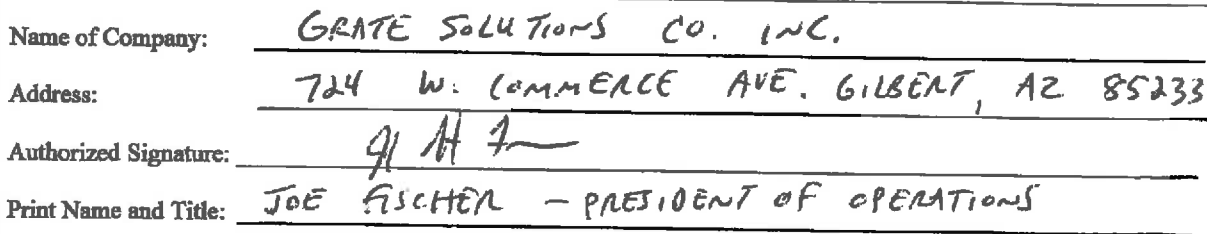 Name of Company: GRATE SOLUTIONS CO. INC.
Address: 724 W. COMMERCE AVE. GILBERT, AZ 85233
Authorized Signature:
Print Name and Title: JOE FISCHER - PRESIDENT OF OPERATIONS